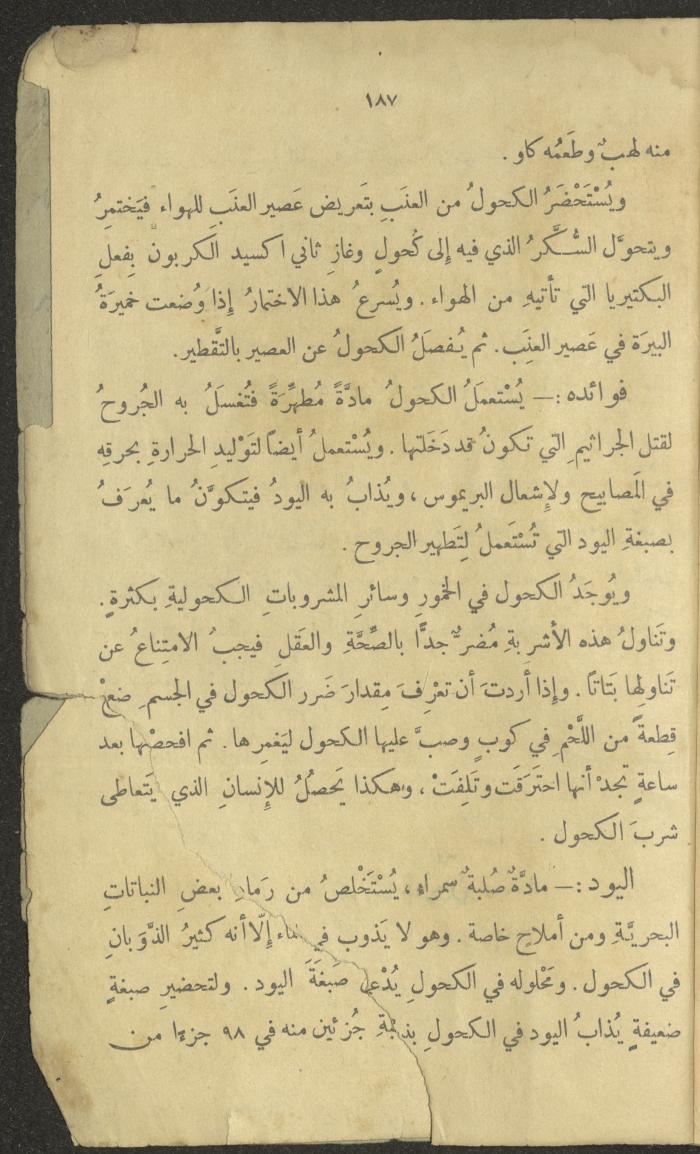 ١٨٧
منه لهبٌ وطَعمُه كاوٍ .
ويُسْتَحْضَرُ الكحولُ من العنَبِ بتَعريض عَصير العنَبِ للهواء فيَختمِرُ
ويتحوَّل السُّكَّرُ الذي فيه إلى كُحولٍ وغازِ ثاني اكسيد الكربون بفعلِ
البكتيريا التي تأتيهِ من الهواء . ويُسرعُ هذا الاختمارُ إذا وُضعت خميرَةُ
البيرَة في عَصير العنَِب . ثم يُفصَلُ الكحولُ عن العصير بالتَّقطير .
فوائده :— يُسْتعمَلُ الكحولُ مادَّةً مُطهِّرَةً فتُغسَلُ به الجُروحُ
لقتل الجراثيمِ التي تكونُ قد دَخَلتها . ويُسْتعملُ أيضاً لتَوْليدِ الحرارةِ بحرقِهِ
في المَصابيح ولإشعال البريموس ، ويُذابُ به اليودُ فيتكوَّنُ ما يُعرَفُ
بصبغةِ اليود التي تُسْتَعملُ لِتَطهير الجروح .
ويُوجَدُ الكحول في الخمُورِ وسائرِ المشروباتِ الكحوليةِ بكثرةٍ .
وتَناولُ هذه الأشربةِ مُضرٌّ جدًّا بالصِّحَّةِ والعَقلِ فيجبُ الامتِناعُ عن
تَناولِها بَتاتاً . وإذا أردتَ أن تعْرِفَ مِقدارَ ضَرر الكحول في الجسم ِ ضعْ
قِطعةً من اللَّحْمِ في كوبٍ وصبَّ عليها الكحول ليَغمِرها . ثم افحصْها بعد
ساعةٍ تجدْ أنها احتَرَقَت وتَلِفَتْ ، وهكذا يَحصُلُ للإِنسانِ الذي يَتعاطى
شربَ الكحول .
اليود :— مادَّةٌ صُلبةٌ سمراء ، يُسْتَخْلصُ من رَمادِ بعضِ النباتاتِ
البحريَّةِ ومن أملاحٍ خاصة . وهو لا يَذوب في إلّا أنه كثيرُ الذَّوَبانِ
في الكحول . ومَحْلوله في الكحولِ يُدْعى صَبغَةَ اليود . ولتحضيرِ صبغةٍ
ضعيفةٍ يُذابُ اليود في الكحولِ جُزئين منه في ٩٨ جزءًا من